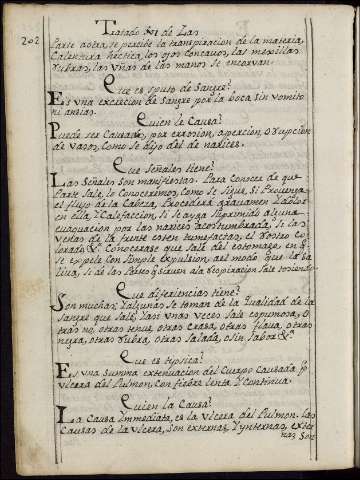 Tratado XI de Las
202
Parte aotra, se percibe la transpiracion de la materia,
Calentura hectica, los ojos concavos, las mexillas
rubras, las uñas de las manos se incorvan.
Que es sputo de Sangre?
Es vna excrecion de sangre por la boca sin vomito
ni ansias.
Quien le Causa?
Puede ser Causado, por errosion, apercion, o rupcion
de vasos, Como se dijo del de narices.
Que Señales tiene?
Las Señales son manifiestas. Para Conocer de que
Parte sale, lo Conoceremos, Como se sigue, Si Proviene
el flujo de la Cabeza, Procederá gravamen y dolor
en ella, y Calefaccion, Si se ayga suprimido alguna
evaquacion por las narices acostumbrada, Si las
venas de la frente esten tumefactas, el rostro Co
lorado &c. Conocerase que sale del estomago, en q̃
se expele con simple expulsion, al modo que la sa
liva, si de las Partes q̃ sirven ala respiracion sale tosiendo.
Que diferiencias tiene?
Son muchas, y algunas se toman de la qualidad de la
sangre que sale, Pues unas veces sale espumosa, o
tras no, otras tenue, otras crasa, otras flava, otras
negra, otras rubra, otras salada, o sin sabor &c.
Que es typsica?
Es vna summa extenuacion del Cuerpo Causada p̃
vlcera del Pulmon, Con fiebre lenta y Continua.
Quien la Causa?
La Causa Ymmediata, es la vlcera del Pulmon. las
Causas de la vlcera, son externas, y ynternas, exter
nas son